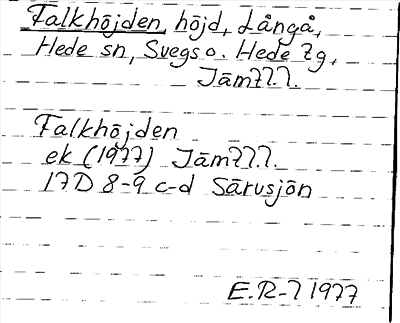 Falkhöjden, höjd, Långå,
Hede sn, Svegs o. Hede tg,
Jämtl.l.
Falkhöjden
ek (1977) Jämtl.l.
17D 8-9 c-d Särusjön
E.R-l 1977